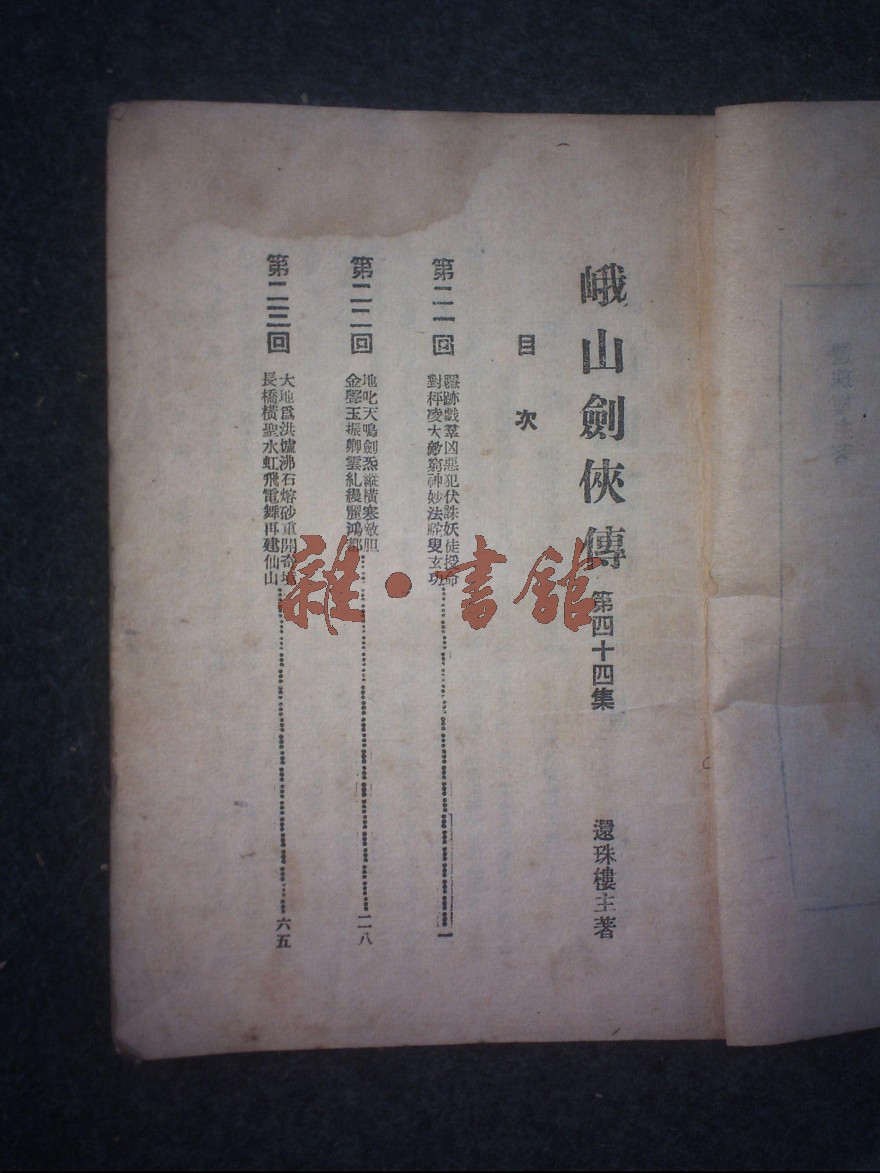 峨山劍俠傳 第四十四集 還珠樓主著
目次
第二一回
跡戲羣凶惡犯伏誅妖徒授命
對枰凌大敵窮神妙法駝叟玄功……一
第二二回
地叱天鳴劍炁縱橫寒敵胆
金聲玉振卿雲糺縵麗鴻都……二八
第二三回
大地爲洪爐沸石熔砂重開奇境
長橋橫聖水虹飛電舞再建仙山……六五
雜·書舘